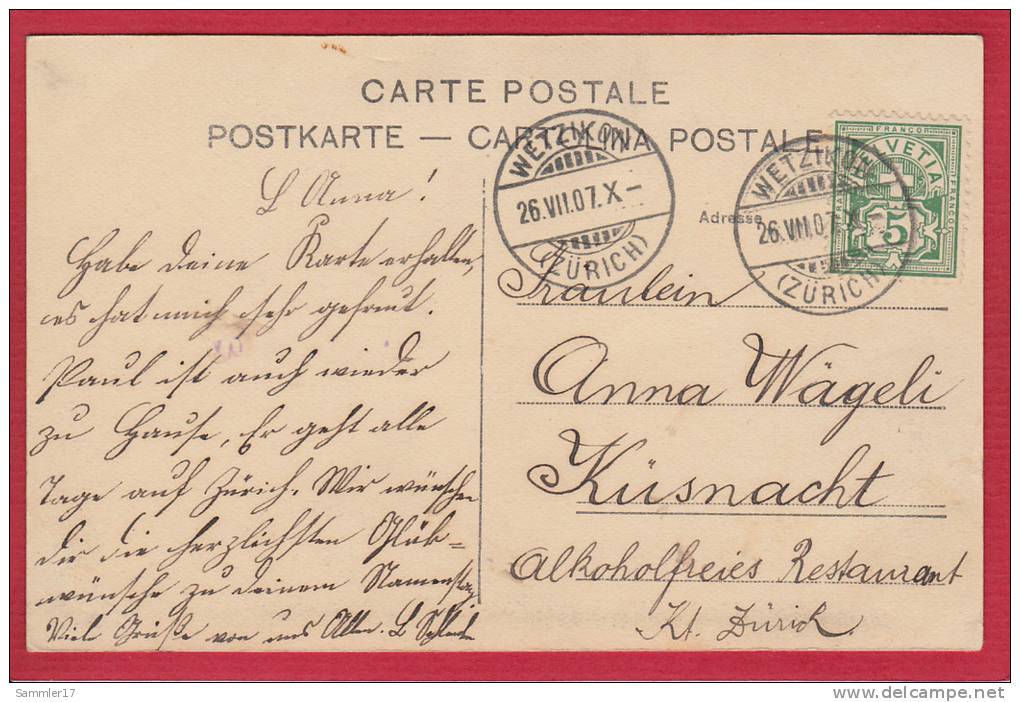 CARTE POSTALE
POSTKARTE — CARTOLINA POSTALE
WETZIKON
26.VII.07.X–
(ZÜRICH)
WETZIKON
26.VII.07.X–
(ZÜRICH)
FRANCO
HELVETIA
FRANCO
5
Adresse
L Anna!
Habe deine Karte erhalten,
es hat mich sehr gefreut.
Paul ist auch wieder
zu Hause, Er geht alle
Tage auf Zürich. Wir wünschen
dir die herzlichsten Glük-
wünsche zu deinem Namenstag
Viel Grüße von uns Allen. L
Fräulein
Anna Wägeli
Küsnacht
Alkoholfreies Restaurant
Kt. Zürich.
Sammler17
www.delcampe.net